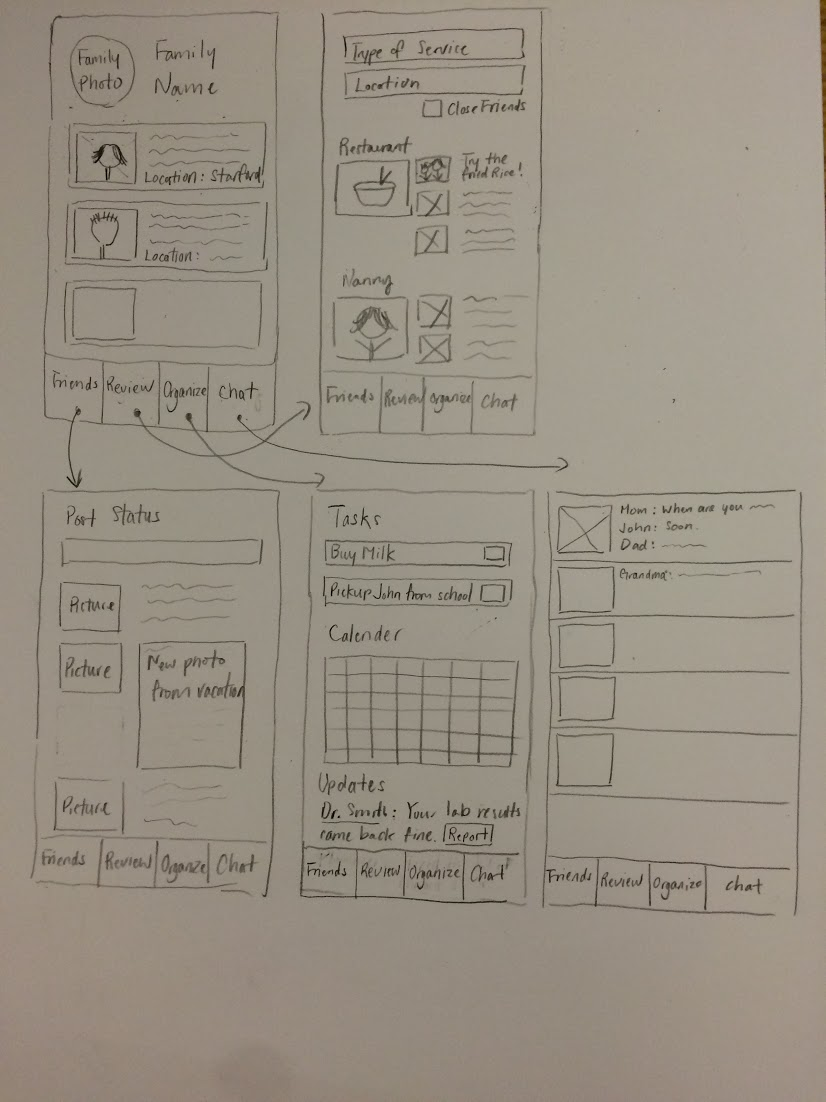 Family
Photo
Family
Name
Location: Stanford
Location:
Friends
Review
Organize
Chat
Type of Service
Location
Close Friends
Restaurant
Try the
fried Rice!
Nanny
Friends
Review
Organize
Chat
Post Status
Picture
Picture
New photo
from vacation
Picture
Friends
Review
Organize
Chat
Tasks
Buy Milk
Pickup John from school
Calender
Updates
Dr. Smith: Your lab results
came back fine. Report
Friends
Review
Organize
Chat
Mom: When are you
John: Soon.
Dad:
Grandma:
Friends
Review
Organize
Chat